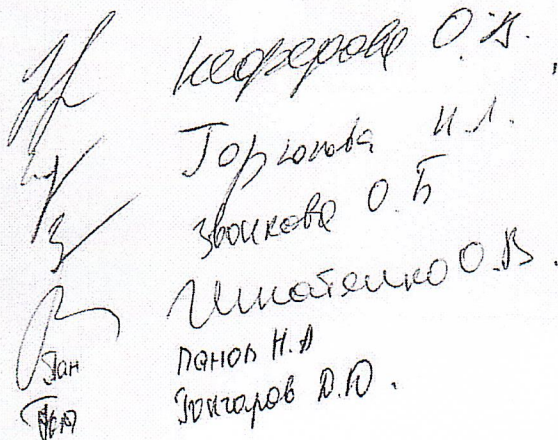 Кеферова О.В.
Горюнова И.Л.
Звонкова О.Б
Игнатенко О.В.
Пан Панов Н.А
Гончаров Д.Ю.